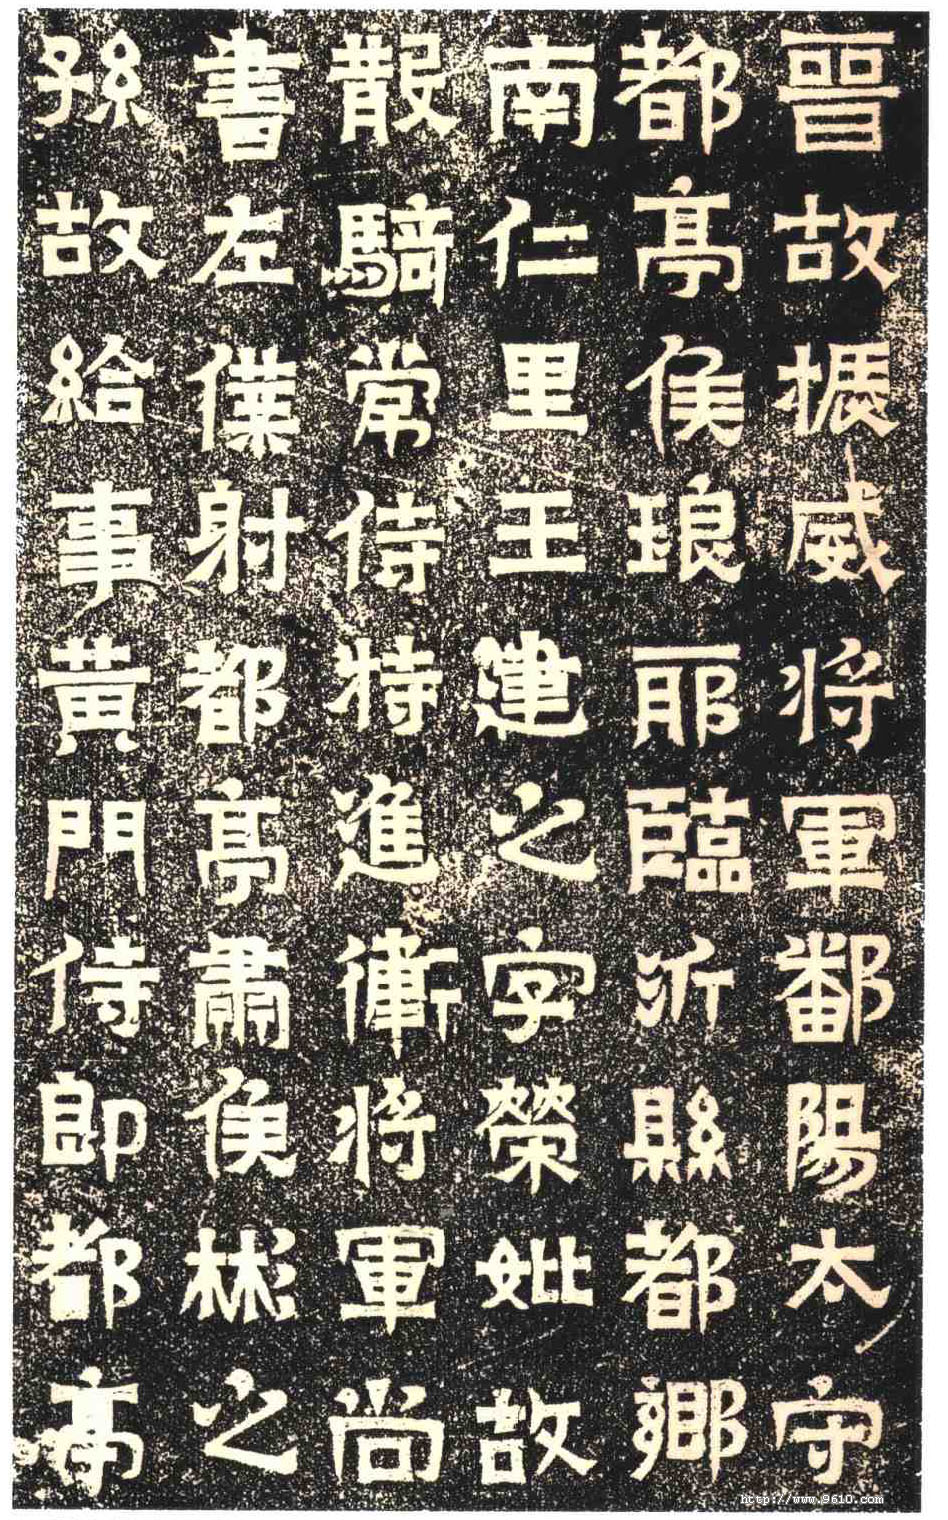 晉故振威將軍鄱陽太守
都亭侯琅耶臨沂縣都鄉
南仁里王建之字榮妣故
散騎常侍特進衛將軍尚
書左僕射都亭肅侯彬之
孫故給事黃門侍郎都亭
http://www.9610.com